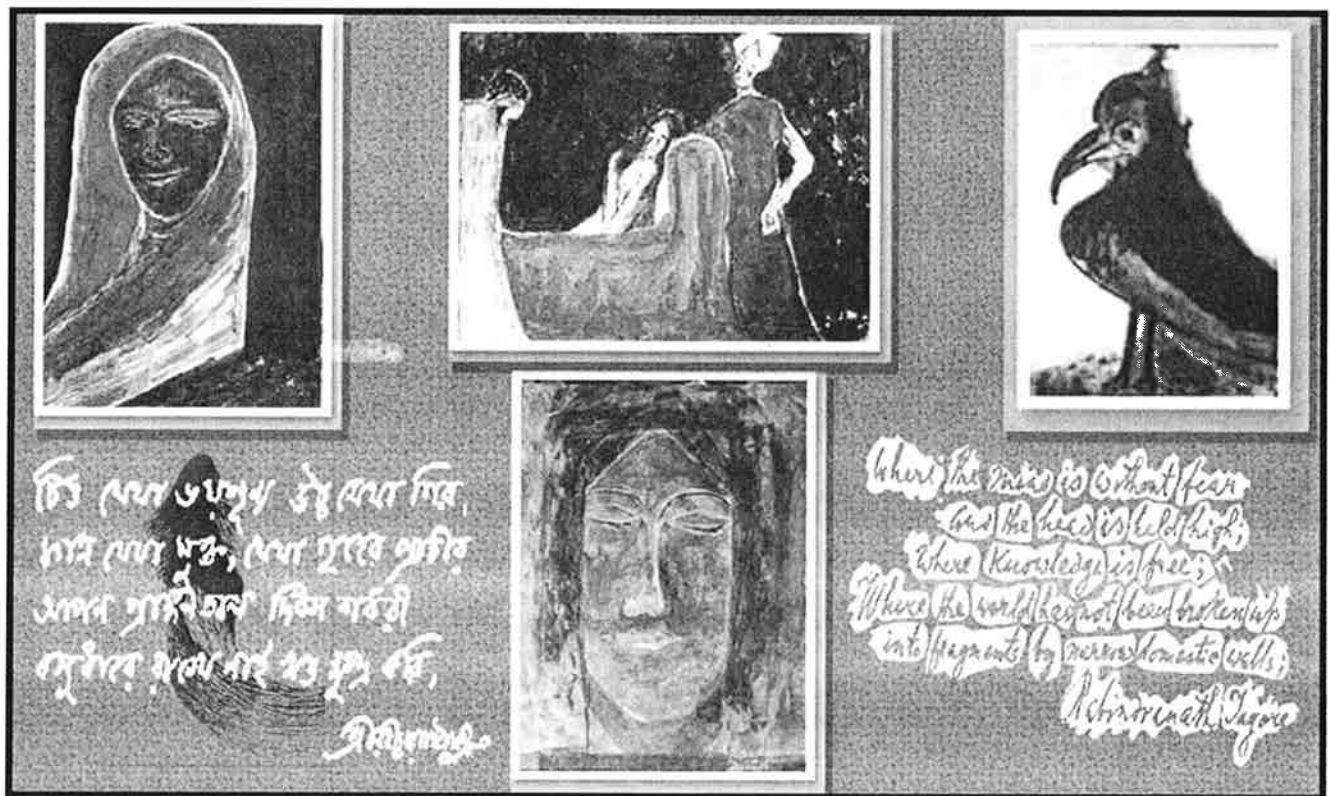 চিত্ত যেথা ভয়শূন্য উচ্চ যেথা শির,
জ্ঞান যেথা মুক্ত, যেথা গৃহের প্রাচীর
আপন প্রাঙ্গণতলে দিবস শর্বরী
বসুধারে রাখে নাই খণ্ড ক্ষুদ্র করি,
শ্রীরবীন্দ্রনাথ ঠাকুর
Where the mind is without fear
and the head is held high;
Where knowledge is free;
Where the world has not been broken up
into fragments by narrow domestic walls;
Rabindranath Tagore